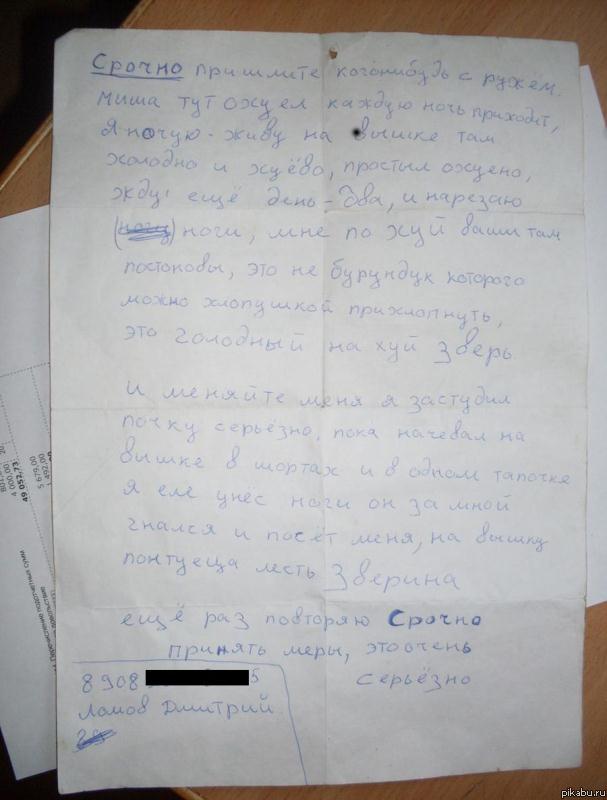 Срочно пришлите когонибудь с ружем.
миша тут охуел каждую ночь приходит,
я ночую-живу на вышке там
холодно и хуёво, простыл охуено,
жду ещё день-два, и нарезаю
ноги, мне по хуй ваши там
постоновы, это не бурундук которого
можно хлопушкой прихлопнуть,
это голодный на хуй зверь.
и меняйте меня я застудил
почку серьёзно, пока начевал на
вышке в шортах и в одном тапочке
я еле унёс ноги он за мной
гнался и посёт меня, на вышку
понтуеща лесть Зверина
ещё раз повторяю Срочно
принять меры, это очень
серьёзно
8908 5
Ломов Дмитрий
20
5 679,00
492,00
49 057,73
4 000,00
pikabu.ru